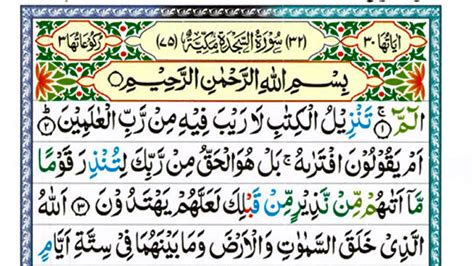 اٰيَاتُهَا ٣٠ (٣٢) سُوْرَةُ السَّجْدَةِ مَكِّيَّةٌ (٧٥) رُكُوْعَاتُهَا ٣
بِسْمِ اللهِ الرَّحْمٰنِ الرَّحِيْمِ
الٓمّٓ ۚ﴿١﴾ تَنْزِيْلُ الْكِتٰبِ لَا رَيْبَ فِيْهِ مِنْ رَّبِّ الْعٰلَمِيْنَ ﴿٢﴾
اَمْ يَقُوْلُوْنَ افْتَرٰىهُ ۚ بَلْ هُوَ الْحَقُّ مِنْ رَّبِّكَ لِتُنْذِرَ قَوْمًا
مَّاۤ اَتٰىهُمْ مِّنْ نَّذِيْرٍ مِّنْ قَبْلِكَ لَعَلَّهُمْ يَهْتَدُوْنَ ﴿٣﴾ اَللهُ
الَّذِيْ خَلَقَ السَّمٰوٰتِ وَالْاَرْضَ وَمَا بَيْنَهُمَا فِيْ سِتَّةِ اَيَّامٍ